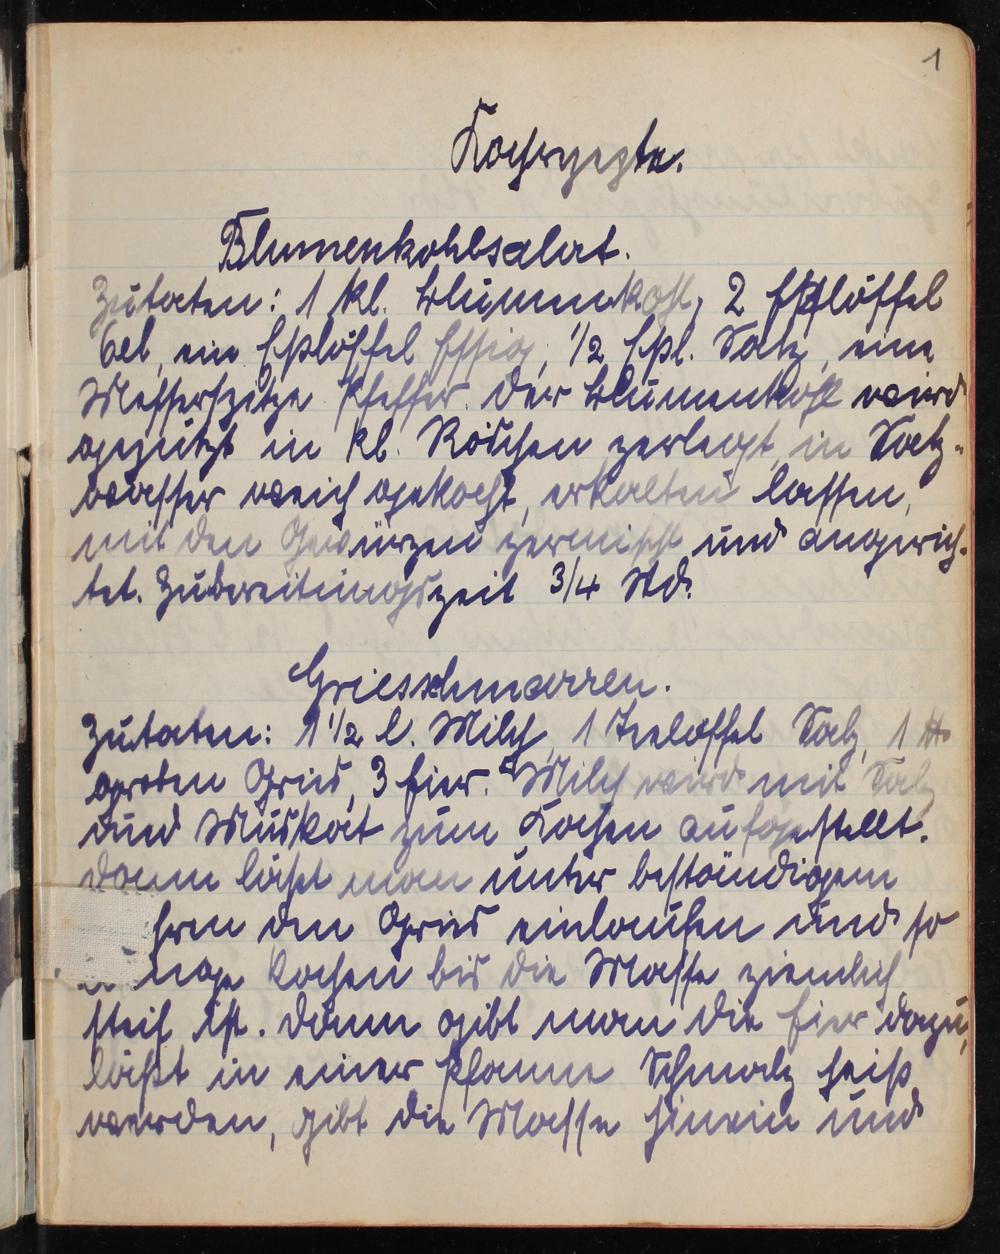 1
Kochrezepte.
Blumenkohlsalat.
Zutaten: 1 kl. Blumenkohl, 2 Eßlöffel
Oel, ein Eßlöffel Essig, 1/2 Eßl. Salz, eine
Messerspitze Pfeffer. Der Blumenkohl wird
geputzt in kl. Röschen zerlegt, in Salz-
wasser weich gekocht, erkalten lassen,
mit den Gewürzen vermischt und angerich-
tet. Zubereitungszeit 3/4 Std.
Griesschmarren.
Zutaten: 1 1/2 l. Milch, 1 Teelöffel Salz, 1 ℔
groben Gries, 3 Eier. Milch wird mit Salz
und Muskat zum Kochen aufgestellt.
dann läßt man unter beständigem
hren den Gries einlaufen und so
nge kochen bis die Masse ziemlich
steif ist. dann gibt man die Eier dazu,
läßt in einer Pfanne Schmalz heiß
werden, gibt die Masse hinein und